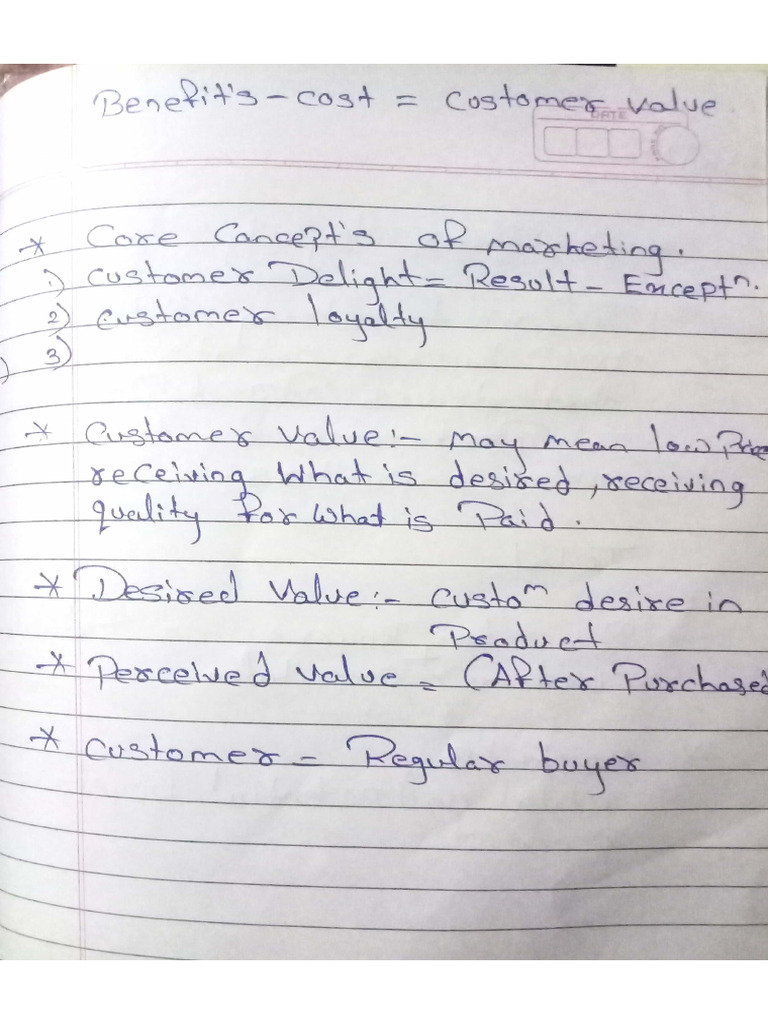 Benefit's - cost = customer value
DATE
* Core Cancept's of marketing.
1) customer Delight = Result - Exceptn.
2) customer loyalty
3)
* Customer value:- may mean low Price
receiving what is desired, receiving
quality for what is Paid.
* Desired Value:- custom desire in
Product
* Perceived value = (After Purchased
* customer - Regular buyer